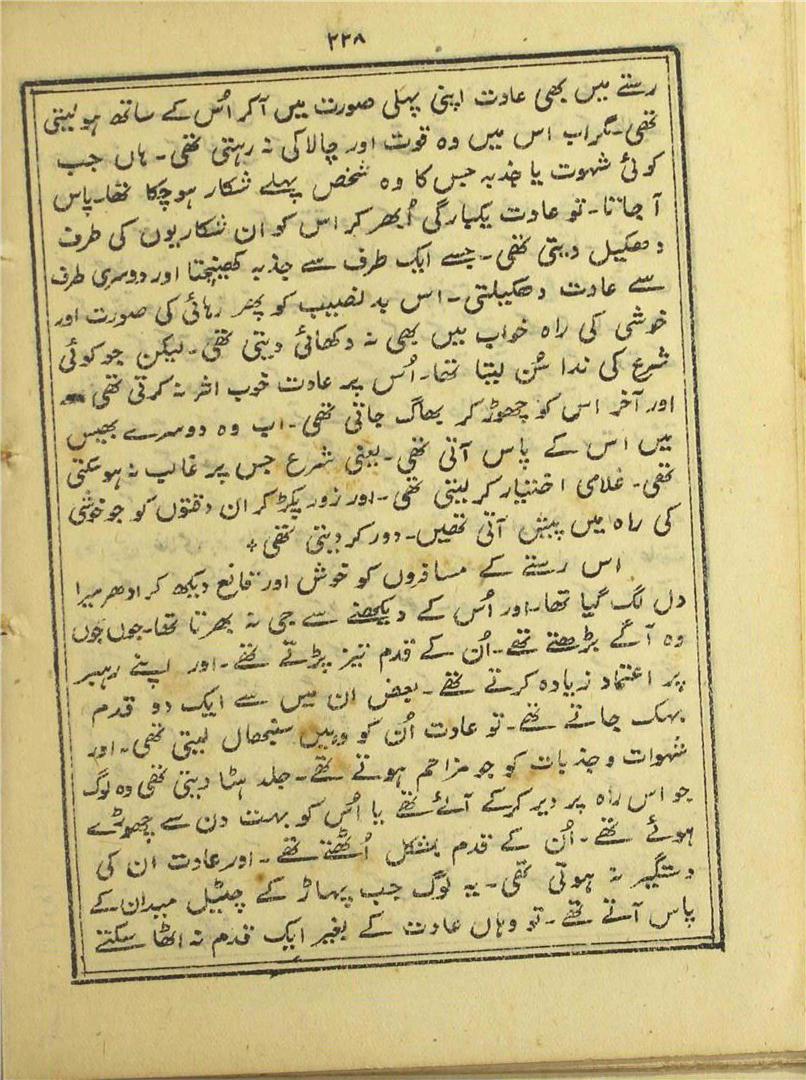 ۲۲۸
رستے میں بھی عادت اپنی پہلی صورت میں آکر اُس کے ساتھ ہو لیتی
تھی۔ مگر اب اس میں وہ قوت اور چالاکی نہ رہتی تھی۔ ہاں جب
کوئی شہوت یا جذبہ جس کا وہ شخص پہلے شکار ہو چکا تھا۔ پاس
آجاتا۔ تو عادت یکبارگی اُبھر کر اس کو ان شکاریوں کی طرف
دھکیل دیتی تھی۔ جسے ایک طرف سے جذبہ کھینچتا اور دوسری طرف
سے عادت دھکیلتی۔ اس بد نصیب کو پھر رہائی کی صورت اور
خوشی کی راہ خواب میں بھی نہ دکھائی دیتی تھی۔ لیکن جو کوئی
شرع کی ندا سُن لیتا تھا۔ اُس پر عادت خوب اثر نہ کرتی تھی
اور آخر اس کو چھوڑ کر بھاگ جاتی تھی۔ اب وہ دوسرے بھیس
میں اس کے پاس آتی تھی۔ یعنی شرع جس پر غالب نہ ہو سکتی
تھی۔ غلامی اختیار کر لیتی تھی۔ اور زور پکڑ کر ان دقتوں کو جو خوشی
کی راہ میں پیش آتی تھیں۔ دور کر دیتی تھی +
اس رستے کے مسافروں کو خوش اور قانع دیکھ کر ادھر میرا
دل لگ گیا تھا۔ اور اُس کے دیکھنے سے جی نہ بھرتا تھا۔ جوں جوں
وہ آگے بڑھتے تھے۔ اُن کے قدم تیز پڑتے تھے۔ اور اپنے رہبر
پر اعتماد زیادہ کرتے تھے۔ بعض ان میں سے ایک دو قدم
بہک جاتے تھے۔ تو عادت اُن کو وہیں سنبھال لیتی تھی۔ اور
شہوات و جذبات کو جو مزاحم ہوتے تھے۔ جلد ہٹا دیتی تھی وہ لوگ
جو اس راہ پر دیر کرکے آئے تھے یا اُس کو بہت دن سے چھوڑے
ہوئے تھے۔ اُن کے قدم بمشکل اُٹھتے تھے۔ اور عادت ان کی
دستگیر نہ ہوتی تھی۔ یہ لوگ جب پہاڑ کے چٹیل میدان کے
پاس آتے تھے۔ تو وہاں عادت کے بغیر ایک قدم نہ اٹھا سکتے